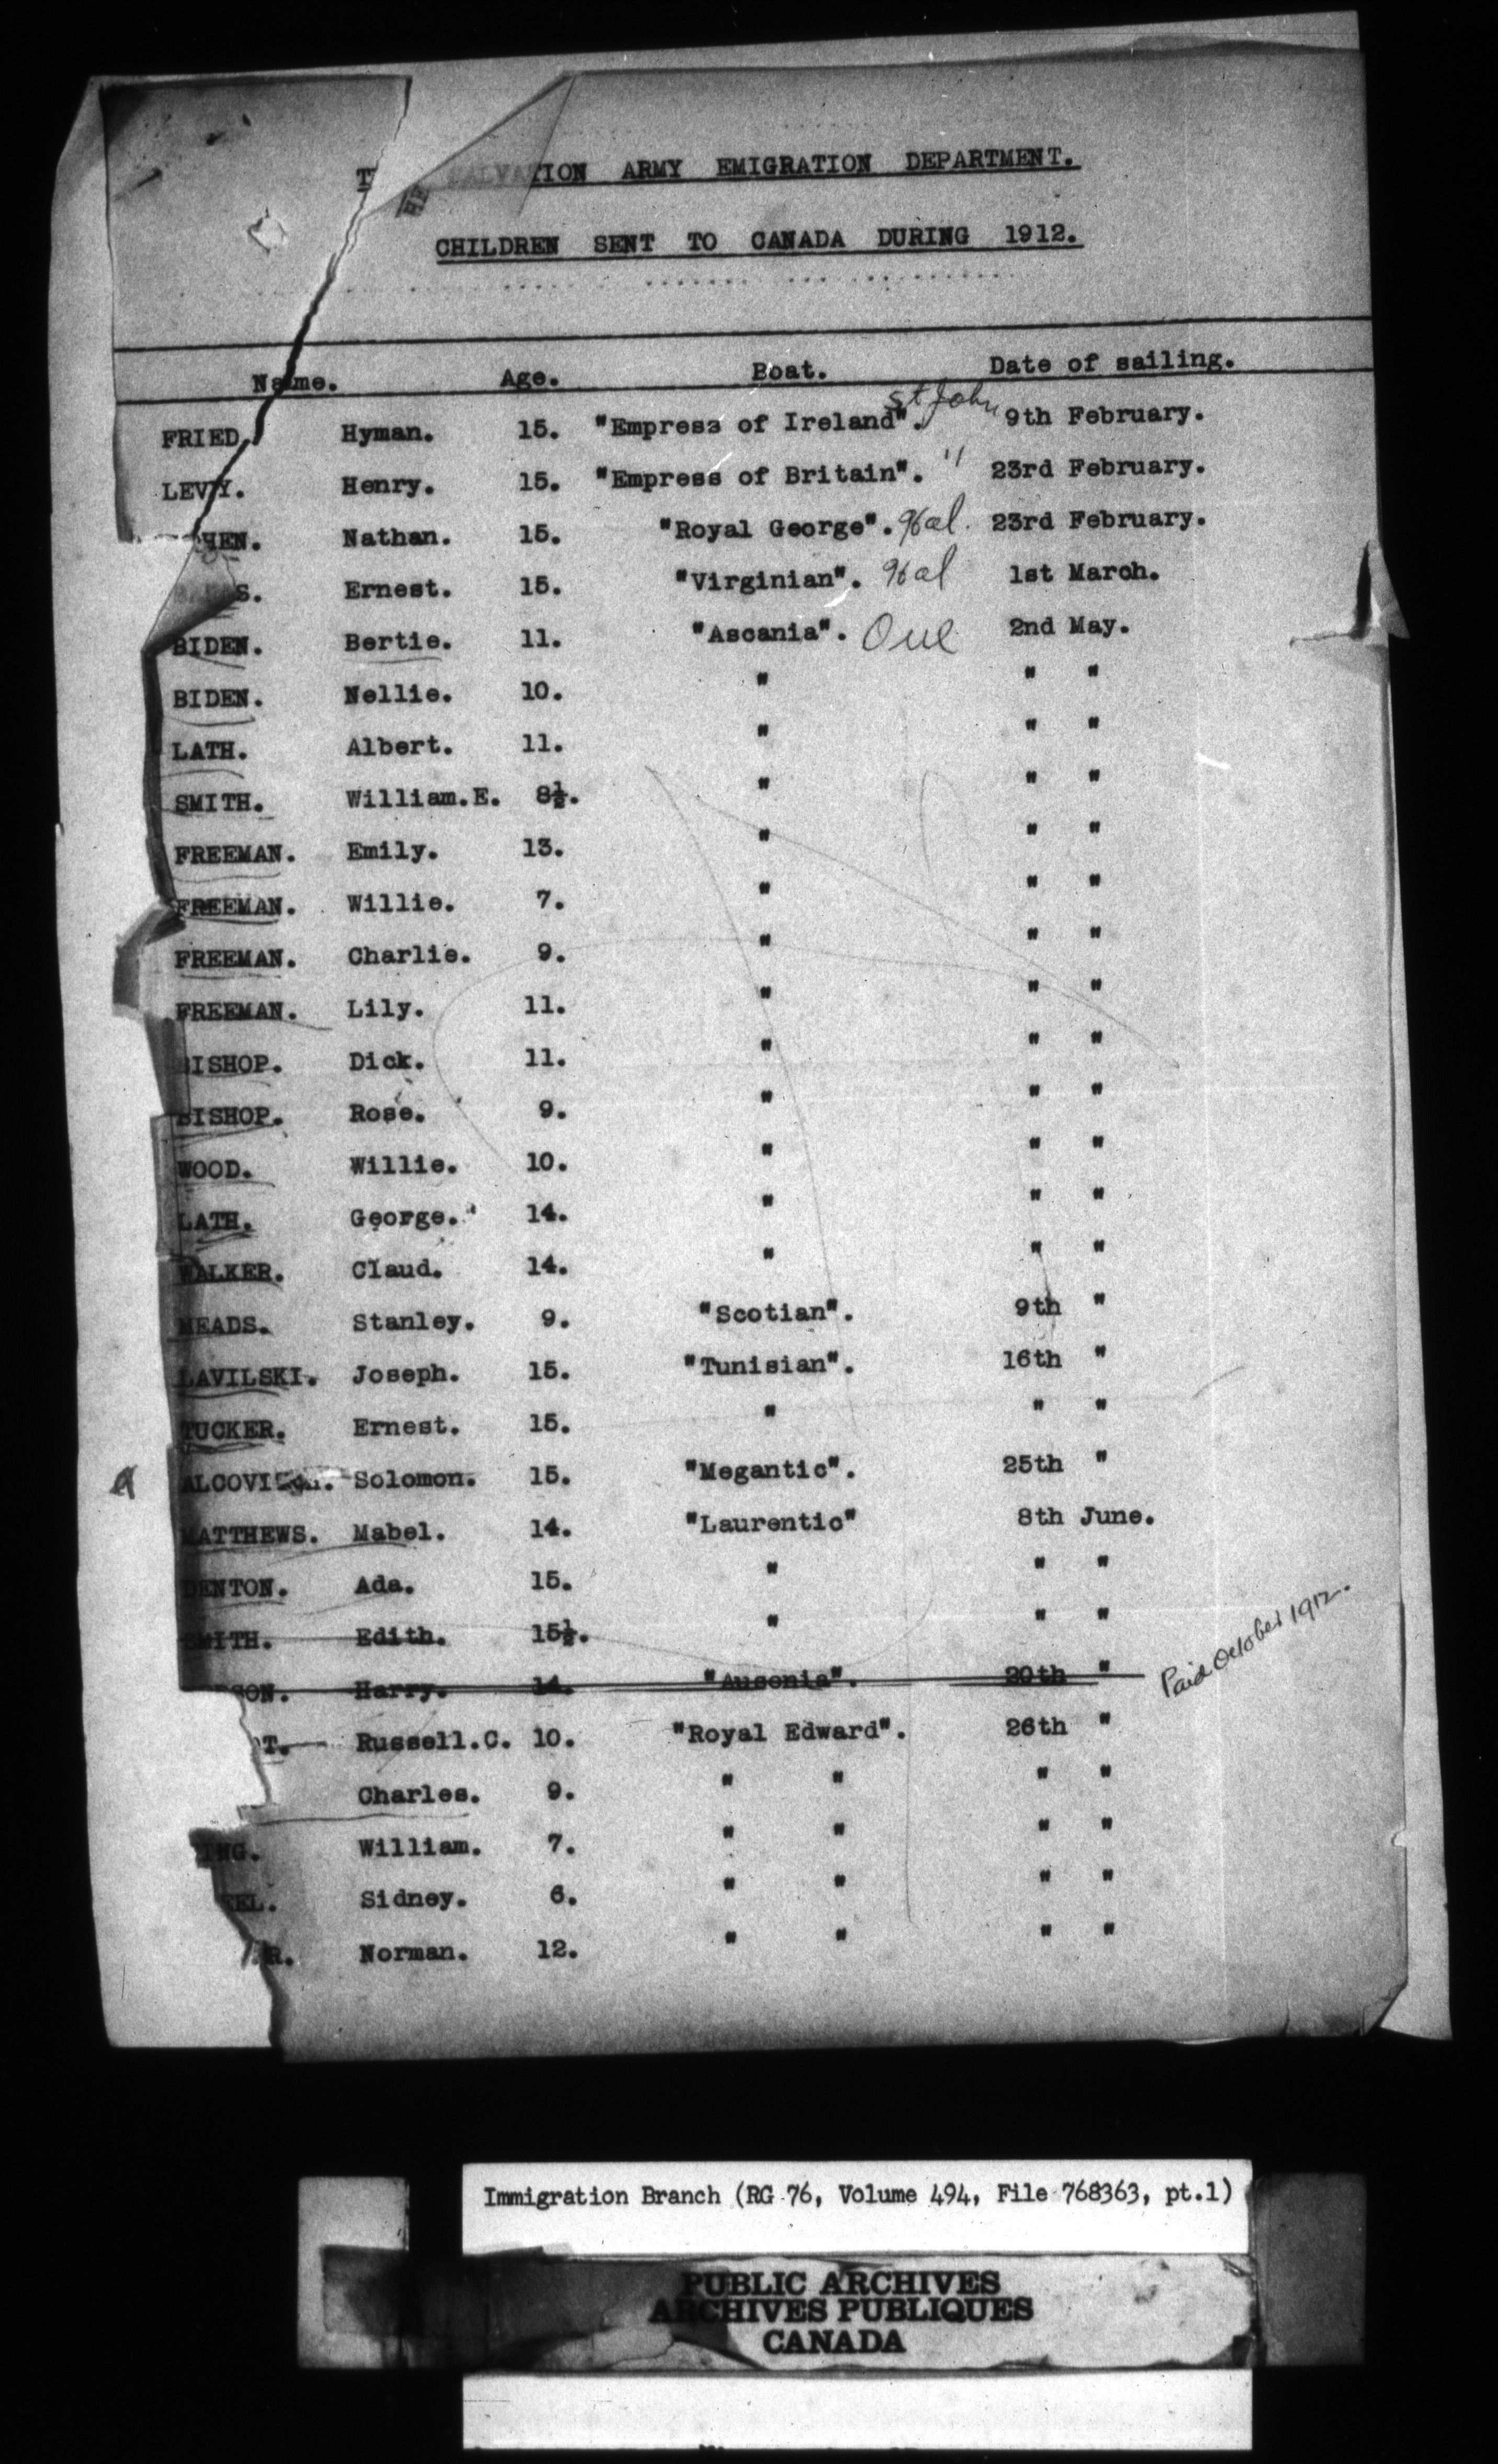 SALVATION ARMY EMIGRATION DEPARTMENT.
CHILDREN SENT TO CANADA DURING 1912.
Name. Age. Boat. Date of sailing.
St John
FRIED. Hyman. 15. "Empress of Ireland". 9th February.
LEVY. Henry. 15. "Empress of Britain". " 23rd February.
HEN. Nathan. 15. "Royal George". Hal. 23rd February.
S. Ernest. 15. "Virginian". Hal 1st March.
BIDEN. Bertie. 11. "Ascania". Que 2nd May.
BIDEN. Nellie. 10. " " "
LATH. Albert. 11. " " "
SMITH. William.E. 8½. " " "
FREEMAN. Emily. 13. " " "
FREEMAN. Willie. 7. " " "
FREEMAN. Charlie. 9. " " "
FREEMAN. Lily. 11. " " "
BISHOP. Dick. 11. " " "
BISHOP. Rose. 9. " " "
WOOD. Willie. 10. " " "
LATH. George. 14. " " "
WALKER. Claud. 14. " " "
MEADS. Stanley. 9. "Scotian". 9th "
LAVILSKI. Joseph. 15. "Tunisian". 16th "
TUCKER. Ernest. 15. " " "
Solomon. 15. "Megantic". 25th "
MATTHEWS. Mabel. 14. "Laurentic" 8th June.
DENTON. Ada. 15. " " "
SMITH. Edith. 15½. " " "
SON. Harry. 14. "Ausonia". 20th "
Paid October 1912.
T. Russell.C. 10. "Royal Edward". 26th "
Charles. 9. " " " "
ING. William. 7. " " " "
EL. Sidney. 6. " " " "
R. Norman. 12. " " " "
Immigration Branch (RG 76, Volume 494, File 768363, pt.1)
PUBLIC ARCHIVES
ARCHIVES PUBLIQUES
CANADA